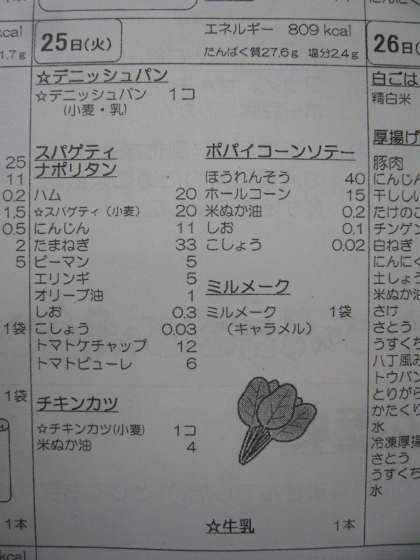 kcal
1.7g
25日(火)
エネルギー 809 kcal
たんぱく質27.6g 塩分2.4g
☆デニッシュパン
☆デニッシュパン 1コ
(小麦・乳)
スパゲティ
ナポリタン
ハム 20
☆スパゲティ(小麦) 20
にんじん 11
たまねぎ 33
ピーマン 5
エリンギ 5
オリーブ油 1
しお 0.3
こしょう 0.03
トマトケチャップ 12
トマトピューレ 6
チキンカツ
☆チキンカツ(小麦) 1コ
米ぬか油 4
ポパイコーンソテー
ほうれんそう 40
ホールコーン 15
米ぬか油 0.2
しお 0.1
こしょう 0.02
ミルメーク
ミルメーク 1袋
(キャラメル)
☆牛乳 1本
25
11
0.2
1.5
0.5
2
5
1袋
1袋
1本
kcal
26日(
白ごは
精白米
厚揚げ
豚肉
にんじん
干ししい
たけのこ
チンゲン
白ねぎ
にんにく
土しょう
米ぬか油
さけ
さとう
うすくち
八丁風み
トウバン
とりがら
かたくり
水
冷凍厚揚
さとう
うすくち
水